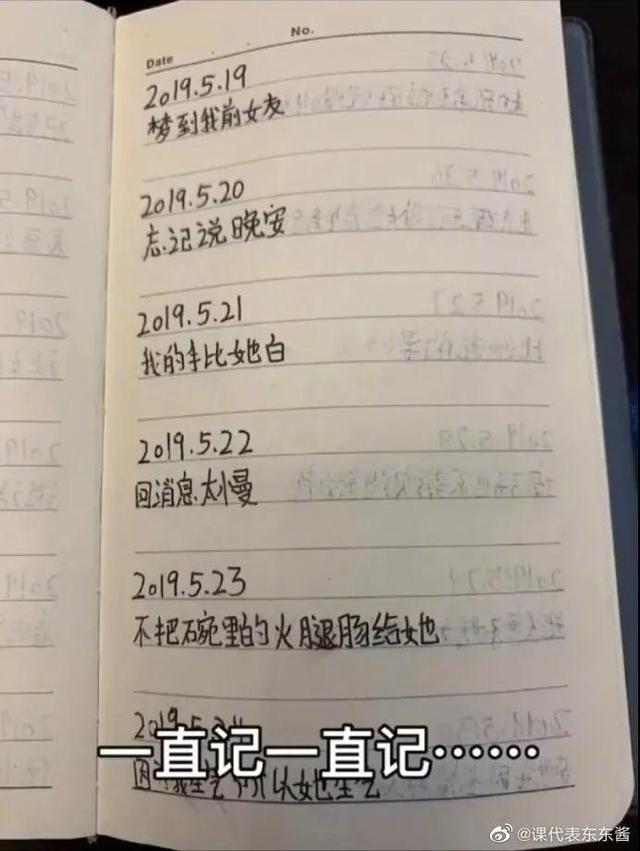 No.
Date
2019.5.19
梦到我前女友
2019.5.20
忘记说晚安
2019.5.21
我的手比她白
2019.5.22
回消息太慢
2019.5.23
不把碗里的火腿肠给她
2019.5.24
一直记一直记······
因为我生气所以她生气
@课代表东东酱